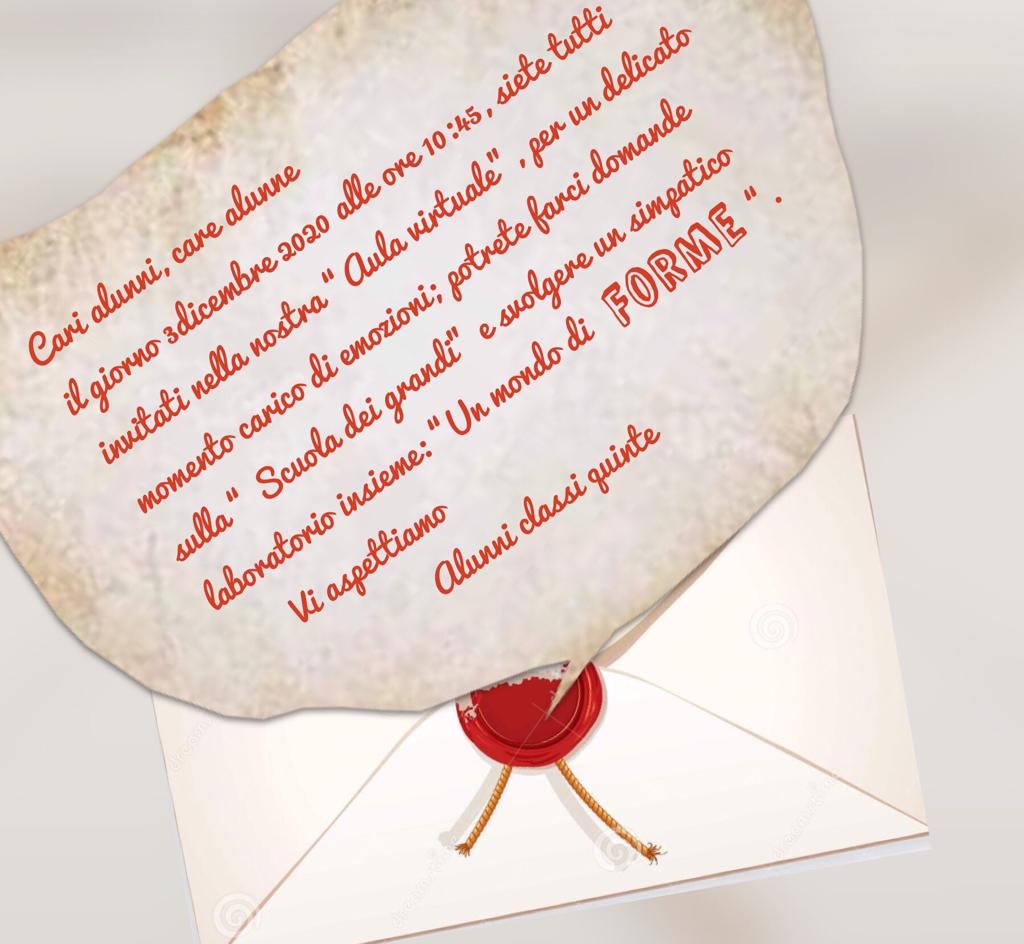 Cari alunni, care alunne
il giorno 3dicembre 2020 alle ore 10:45, siete tutti
invitati nella nostra" Aula virtuale" , per un delicato
momento carico di emozioni; potrete farci domande
sulla" Scuola dei grandi" e svolgere un simpatico
laboratorio insieme:" Un mondo di FORME".
Vi aspettiamo
Alunni classi quinte